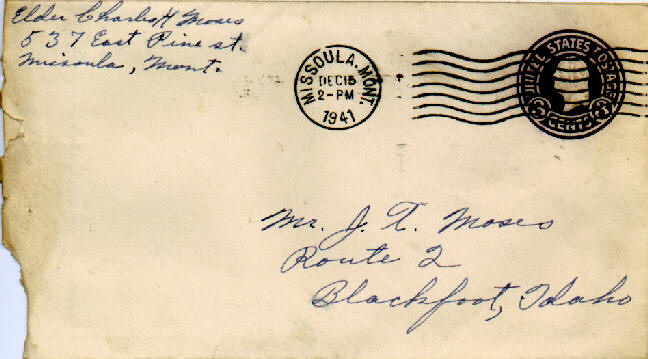 Elder Charles H Moses
537 East Pine st.
Missoula, Mont.
MISSOULA, MONT.
DEC 15
2-PM
1941
UNITED STATES POSTAGE
3 CENTS 3
Mr. J. T. Moses
Route 2
Blackfoot, Idaho